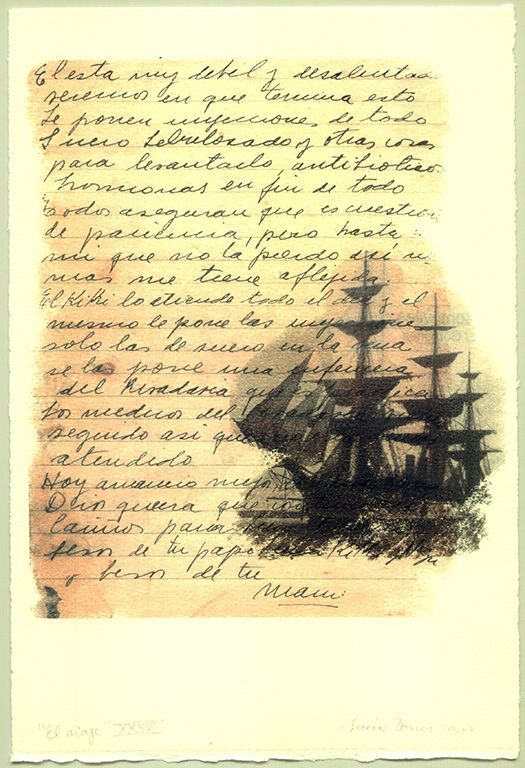 El esta muy debil y desalentado
veremos en que termina esto
Le ponen inyecciones de todo
Suero y otras cosas
para levantarlo, antibioticos
hormonas en fin de todo
Todos aseguran que es cuestion
de paciencia, pero hasta
mi que no la pierdo asi no
mas me tiene aflejida
El Kiki lo atiende todo el dia y el
mismo le pone las inyecciones
solo las de suero en la vena
se las pone una enfermera
del Rivadavia que
los medicos del
seguido asi que
atendido
Hoy amanecio mejor
Dios quiera que
cariños para
besos de tu papá
y besos de tu
Mami
"El viaje" XXXVI